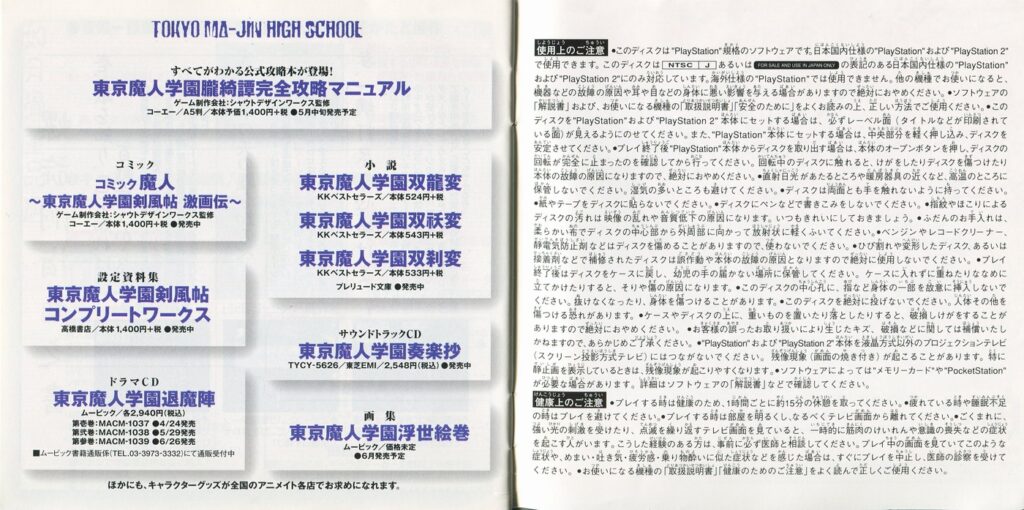 TOKYO MA-JIN HIGH SCHOOL
すべてがわかる公式攻略本が登場!
東京魔人学園朧綺譚完全攻略マニュアル
ゲーム制作会社:シャウトデザインワークス監修
コーエー/A5判/本体予価1,400円+税 ●5月中旬発売予定
コミック
コミック 魔人
〜東京魔人学園剣風帖 激画伝〜
ゲーム制作会社:シャウトデザインワークス監修
コーエー/本体1,400円+税 ●発売中
設定資料集
東京魔人学園剣風帖
コンプリートワークス
高橋書店/本体1,400円+税 ●発売中
ドラマCD
東京魔人学園退魔陣
ムービック/各2,940円(税込)
第壱巻:MACM-1037 ●4/24発売
第弐巻:MACM-1038 ●5/29発売
第参巻:MACM-1039 ●6/26発売
■ムービック書籍通販係(TEL.03-3973-3332)にて通販受付中
小説
東京魔人学園双龍変
KKベストセラーズ/本体524円+税
東京魔人学園双祆変
KKベストセラーズ/本体543円+税
東京魔人学園双刹変
KKベストセラーズ/本体533円+税
プレリュード文庫 ●発売中
サウンドトラックCD
東京魔人学園奏楽抄
TYCY-5626/東芝EMI/2,548円(税込) ●発売中
画集
東京魔人学園浮世絵巻
ムービック/価格未定
●6月発売予定
ほかにも、キャラクターグッズが全国のアニメイト各店でお求めになれます。
使用上のご注意 ●このディスクは"PlayStation"規格のソフトウェアです。日本国内仕様の"PlayStation"および"PlayStation 2"
で使用できます。このディスクは NTSC J あるいは FOR SALE AND USE IN JAPAN ONLY の表記のある日本国内仕様の"PlayStation"
および"PlayStation 2"にのみ対応しています。海外仕様の"PlayStation"では使用できません。他の機種でお使いになると、
機器などの故障の原因や耳や目などの身体に悪い影響を与える場合がありますので絶対におやめください。●ソフトウェアの
「解説書」および、お使いになる機種の「取扱説明書」「安全のために」をよくお読みの上、正しい方法でご使用ください。●この
ディスクを"PlayStation"および"PlayStation 2"本体にセットする場合は、必ずレーベル面(タイトルなどが印刷されて
いる面)が見えるようにのせてください。また、"PlayStation"本体にセットする場合は、中央部分を軽く押し込み、ディスクを
安定させてください。●プレイ終了後"PlayStation"本体からディスクを取り出す場合は、本体のオープンボタンを押し、ディスクの
回転が完全に止まったのを確認してから行ってください。回転中のディスクに触れると、けがをしたりディスクを傷つけたり
本体の故障の原因になりますので、絶対におやめください。●直射日光があたるところや暖房器具の近くなど、高温のところに
保管しないでください。湿気の多いところも避けてください。●ディスクは両面とも手を触れないように持ってください。
●紙やテープをディスクに貼らないでください。●ディスクにペンなどで書きこみをしないでください。●指紋やほこりによる
ディスクの汚れは映像の乱れや音質低下の原因になります。いつもきれいにしておきましょう。●ふだんのお手入れは、
柔らかい布でディスクの中心部から外周部に向かって放射状に軽くふいてください。●ベンジンやレコードクリーナー、
静電気防止剤などはディスクを傷めることがありますので、使わないでください。●ひび割れや変形したディスク、あるいは
接着剤などで補修されたディスクは誤作動や本体の故障の原因となりますので絶対に使用しないでください。●プレイ
終了後はディスクをケースに戻し、幼児の手の届かない場所に保管してください。ケースに入れずに重ねたりななめに
立てかけたりすると、そりや傷の原因になります。●このディスクの中心孔に、指など身体の一部を故意に挿入しないで
ください。抜けなくなったり、身体を傷つけることがあります。●このディスクを絶対に投げないでください。人体その他を
傷つける恐れがあります。●ケースやディスクの上に、重いものを置いたり落としたりすると、破損しけがをすることが
ありますので絶対におやめください。●お客様の誤ったお取り扱いにより生じたキズ、破損などに関しては補償いたし
かねますので、あらかじめご了承ください。●"PlayStation"および"PlayStation 2"本体を液晶方式以外のプロジェクションテレビ
(スクリーン投影方式テレビ)にはつながないでください。残像現象(画面の焼き付き)が起こることがあります。特に
静止画を表示しているときは、残像現象が起こりやすくなります。●ソフトウェアによっては"メモリーカード"や"PocketStation"
が必要な場合があります。詳細はソフトウェアの「解説書」などで確認してください。
健康上のご注意 ●プレイする時は健康のため、1時間ごとに約15分の休憩を取ってください。●疲れている時や睡眠不足
の時はプレイを避けてください。●プレイする時は部屋を明るくし、なるべくテレビ画面から離れてください。●ごくまれに、
強い光の刺激を受けたり、点滅を繰り返すテレビ画面を見ていると、一時的に筋肉のけいれんや意識の喪失などの症状
を起こす人がいます。こうした経験のある方は、事前に必ず医師と相談してください。プレイ中の画面を見ていてこのような
症状や、めまい・吐き気・疲労感・乗り物酔いに似た症状などを感じた場合は、すぐにプレイを中止し、医師の診察を受けて
ください。●お使いになる機種の「取扱説明書」「健康のためのご注意」をよく読んで正しくご使用ください。